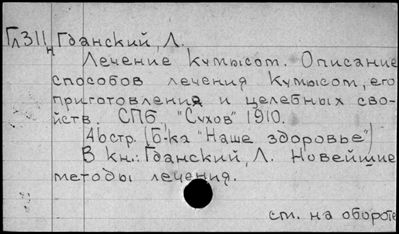 Гл311н Гданский, Л.
Лечение кумысом. Описание
способов лечения кумысом, его
приготовления и целебных свой-
ств. СПб, "Сухов" 1910.
46стр. (Б-ка "Наше здоровье")
В кн.: Гданский, Л. Новейшие
методы лечения.
см. на обороте